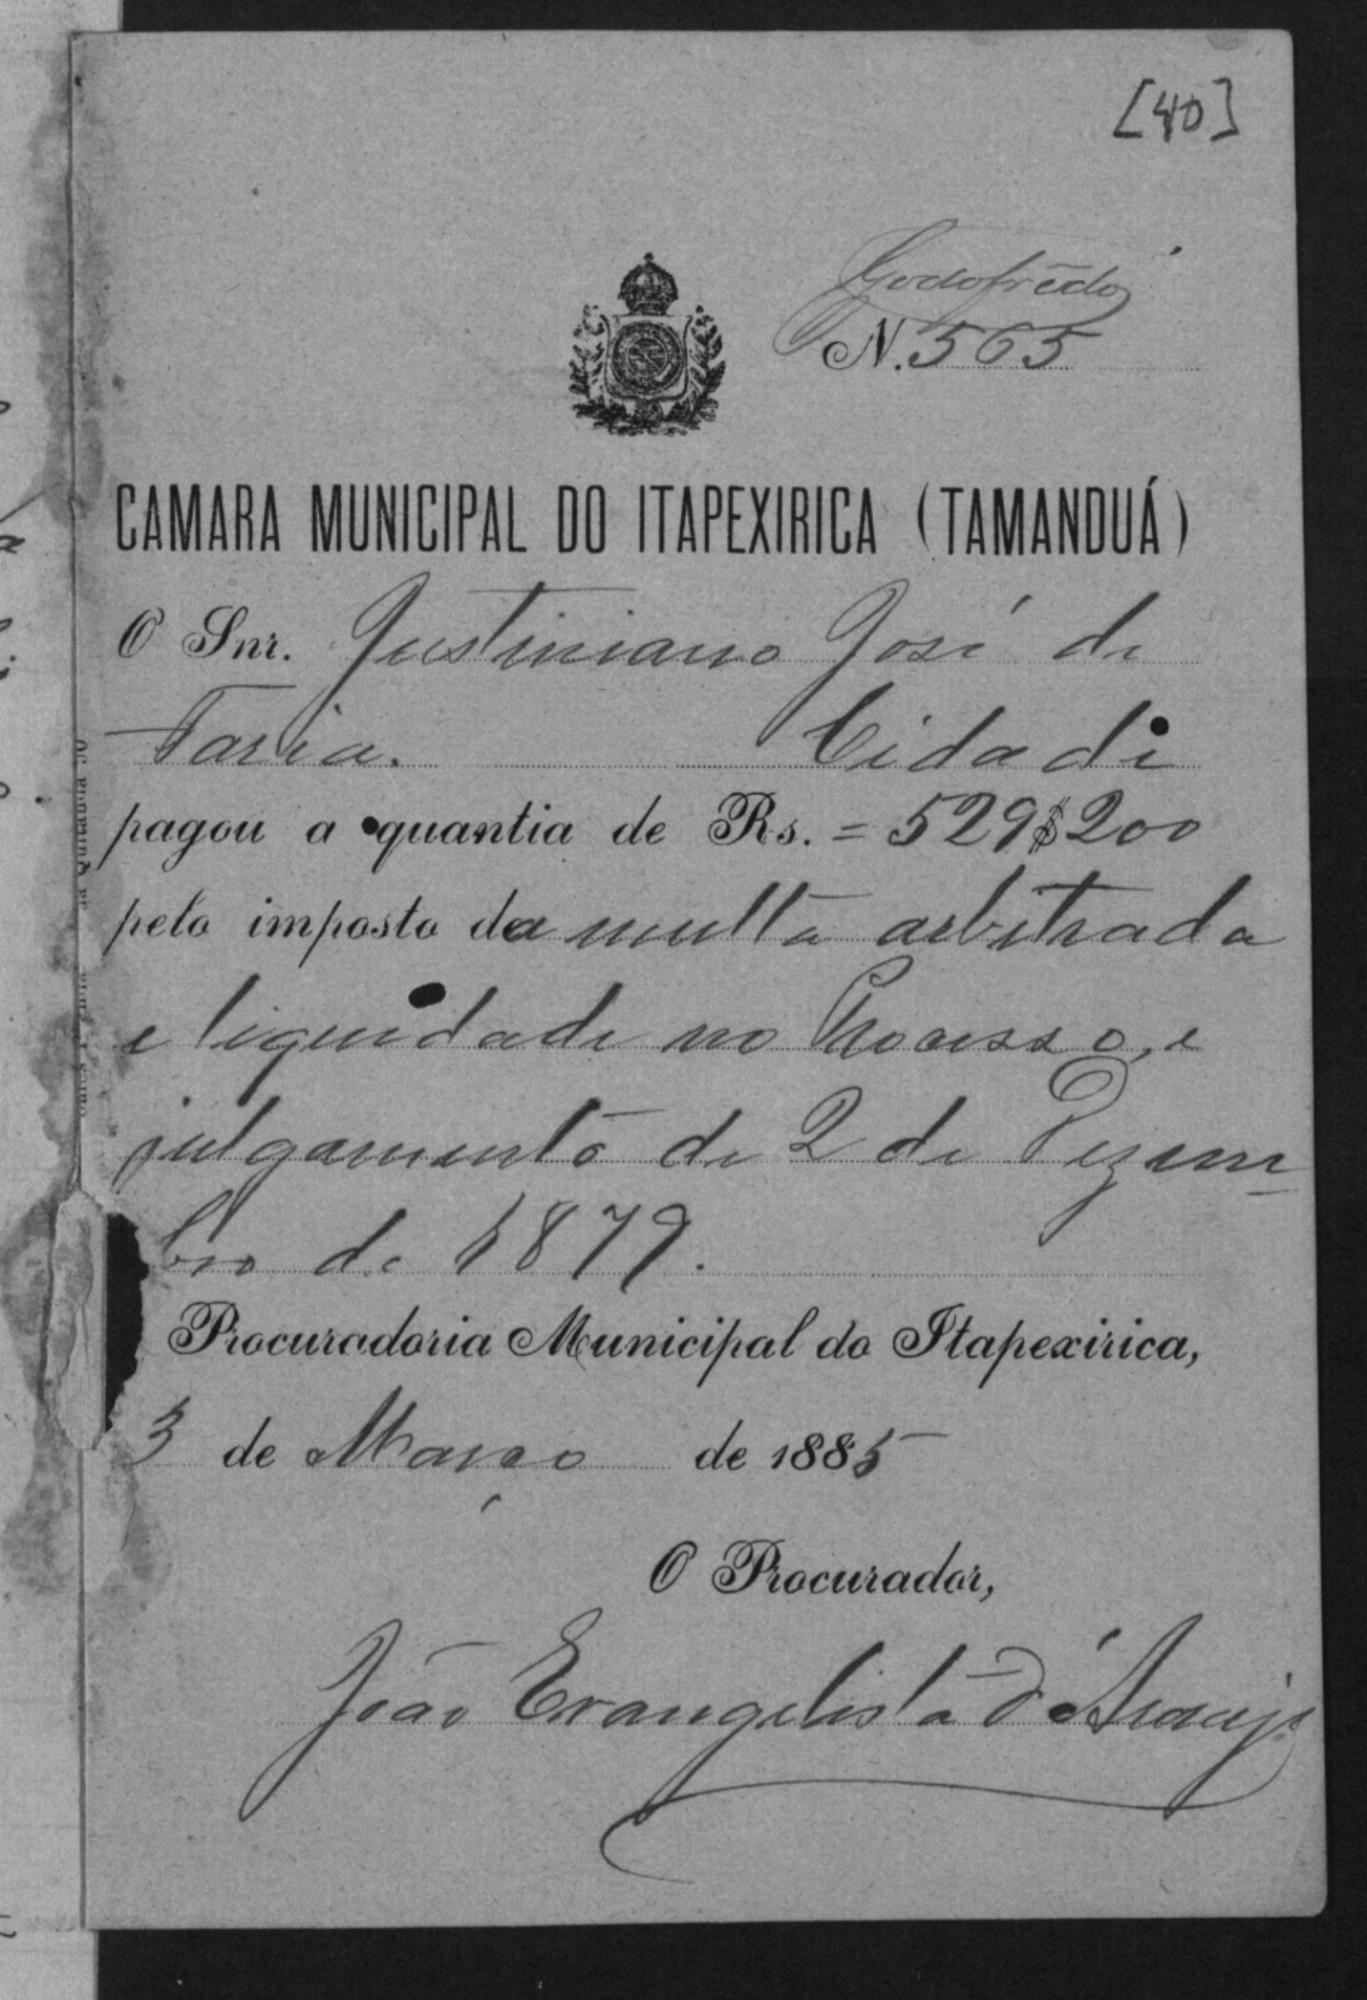 [40]
Godofrêdo
N. 565
CAMARA MUNICIPAL DO ITAPEXIRICA (TAMANDUÁ)
O Snr. Justiniano José de
Faria. Cidade
pagou a quantia de Rs. = 529$200
pelo imposto da multa arbitrada
e liquidade no Processo, e
julgamento de 2 de Dezem
bro de 1879.
Procuradoria Municipal do Itapexirica,
3 de Março de 1885
O Procurador,
João Evangelista d'Araujo
da Quitanda